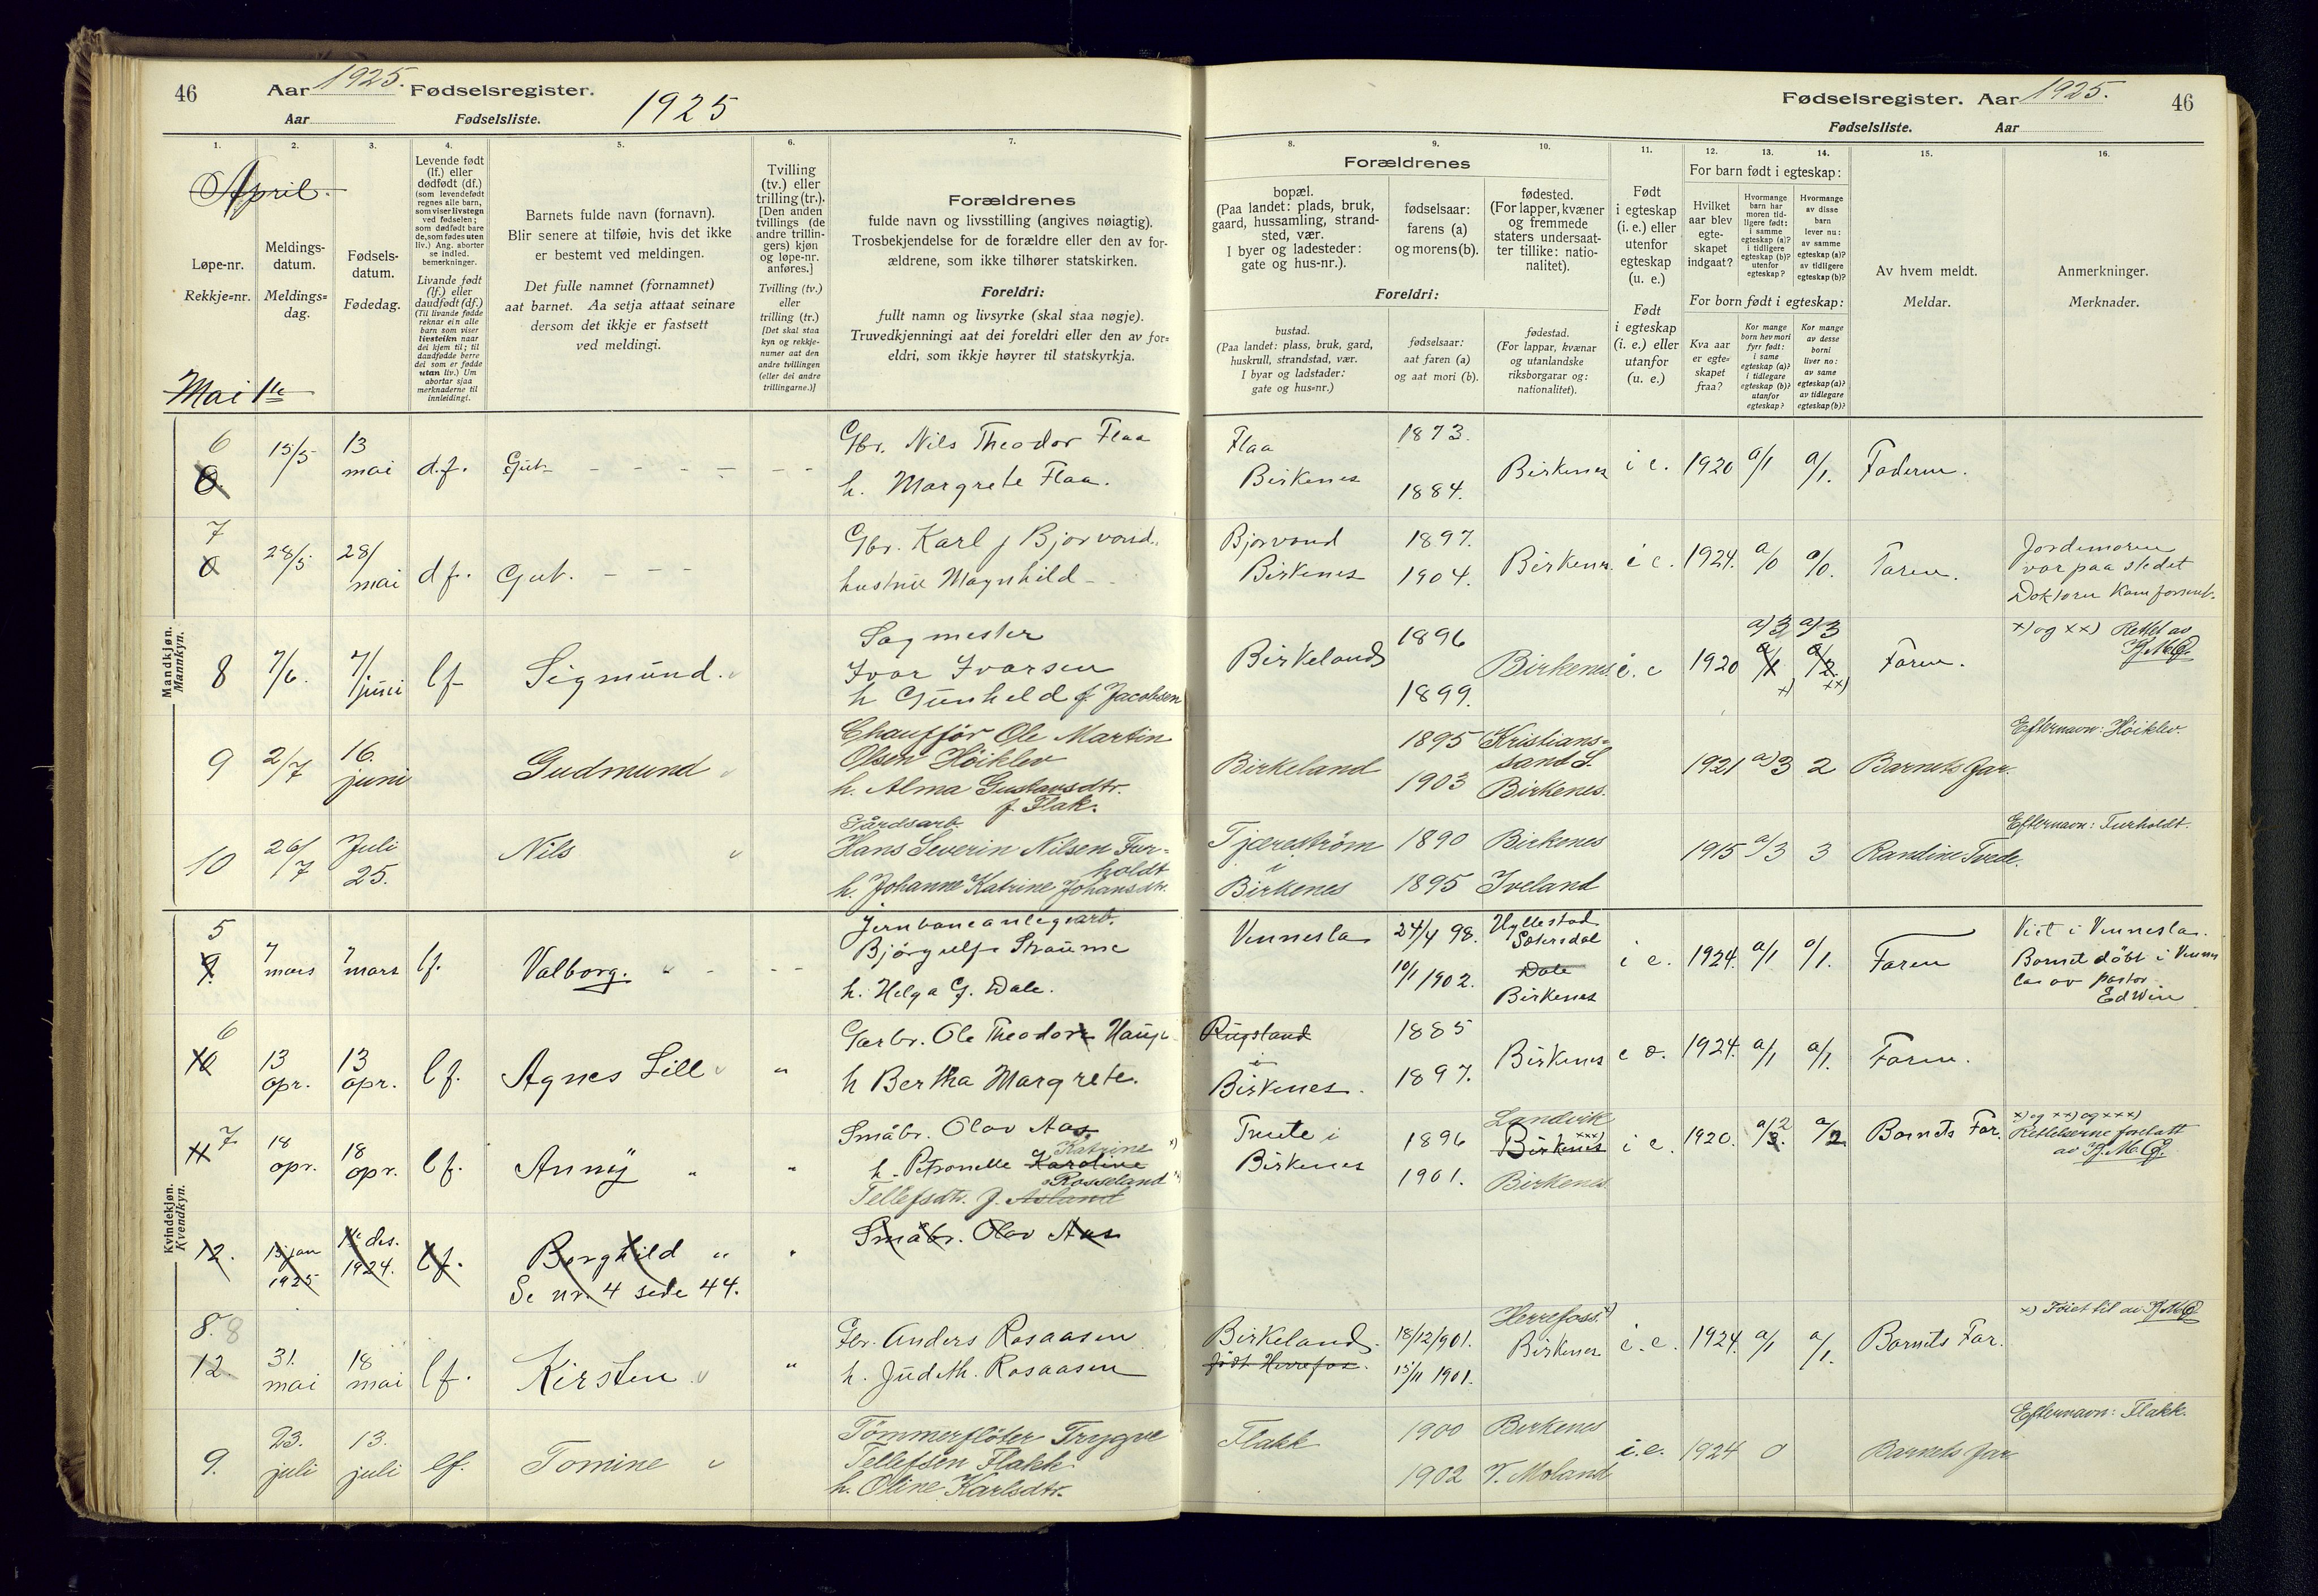 46 Aar 1925. Fødselsregister.
Aar Fødselsliste. 1925
1. 2. 3. 4. 5. 6. 7.
April.
Løpe-nr.
Rekkje=nr.
Mai
Meldings-
datum.
Meldings=
dag.
Fødsels-
datum.
Fødedag.
Levende født
(lf.) eller
dødfødt (df.)
(som levendefødt
regnes alle barn,
som viser livstegn
ved fødselen;
som dødfødt bare
de, som fødes uten
liv.) Ang. aborter
se indled.
bemerkninger.
Livande født
(lf.) eller
daudfødt (df.)
(Til livande fødde
reknar ein alle
barn som viser
livsteikn naar
dei kjem til; til
daudfødde berre
dei som er fødde
utan liv.) Um
abortar sjaa
merknaderne til
innleidingi.
Barnets fulde navn (fornavn).
Blir senere at tilføie, hvis det ikke
er bestemt ved meldingen.
Det fulle namnet (fornamnet)
aat barnet. Aa setja attaat seinare
dersom det ikkje er fastsett
ved meldingi.
Tvilling
(tv.) eller
trilling (tr.).
[Den anden
tvillings (de
andre trillin-
gers) kjøn
og løpe-nr.
anføres.]
Tvilling (tv.)
eller
trilling (tr.)
[Det skal staa
kyn og rekkje-
numer aat den
andre tvillingen
(eller dei andre
trillingarne.)]
Forældrenes
fulde navn og livsstilling (angives nøiagtig).
Trosbekjendelse for de forældre eller den av for-
ældrene, som ikke tilhører statskirken.
Foreldri:
fullt namn og livsyrke (skal staa nøgje).
Truvedkjenningi aat dei foreldri eller den av for=
eldri, som ikkje høyrer til statskyrkja.
Mandkjøn.
Mannkyn.
6 15/5 13 mai d.f. Gut
Gbr. Nils Theodor Flaa
h. Margrete Flaa.
7 28/5. 28/ mai df. Gut.
Gbr. Karl J Bjorvand.
hustrue Magnhild
8 7/6. 7/ juni lf Sigmund.
Sagmester
Ivar Ivarsen
h Gunhild f. Jacobsen
9 2/7 16. juni Gudmund
Chauffør Ole Martin
Olsen Høiklev
h. Alma Gustavsdtr.
f. Flak.
10 26/7 Juli 25. Nils
Gårdsarb.
Hans Severin Nilsen Fur=
holdt
h. Johanne Katrine Johansdtr.
Kvindekjøn.
Kvendkyn.
5 9. 7 mars 7 mars lf. Valborg.
Jernbaneanlegsarb.
Bjørgulf Straume
h. Helga G. Dale.
6 10 13 apr. 13 apr. lf. Agnes Lill
Garbr. Ole Theodor Haug
h Bertha Margrete.
7. 11 18 apr. 18 apr. lf. Anny
Småbr. Olav Aas
Katrine x)
h. Petronelle Karoline
Rosseland
Tellefsdtr. f. Åsland
12. 13 jan 1925 des. 1924. lf. Borghild
Se nr. 4 side 44.
Småbr. Olav Aas
8. 8 12. 31. mai 18 mai lf. Kirsten
Gbr. Anders Rosaasen
h. Judith. Rosaasen
9. 23. juli 13. juli lf. Tomine
Tømmerfløter Trygve
Tellefsen Flakk
h. Oline Karlsdtr.
Fødselsregister. Aar 1925. 46
Fødselsliste. Aar
8. 9. 10. 11. 12. 13. 14. 15. 16.
Forældrenes
bopæl.
(Paa landet: plads, bruk,
gaard, hussamling, strand-
sted, vær.
I byer og ladesteder:
gate og hus-nr.).
fødselsaar:
farens (a)
og morens (b).
fødested.
(For lapper, kvæner
og fremmede
staters undersaat-
ter tillike: natio-
nalitet).
Foreldri:
bustad.
(Paa landet: plass, bruk, gard,
huskrull, strandstad, vær.
I byar og ladstader:
gate og hus=nr.)
fødselsaar:
aat faren (a)
og aat mori (b).
fødestad.
(For lappar, kvænar
og utanlandske
riksborgarar og:
nationalitet).
Født
i egteskap
(i. e.) eller
utenfor
egteskap
(u. e.)
Født
i egteskap
(i. e.) eller
utanfor
(u. e.)
For barn født i egteskap:
Hvilket
aar blev
egte-
skapet
indgaat?
Hvormange
barn har
moren tid-
ligere født:
i samme
egteskap (a)?
i tidligere
egteskap (b)?
utenfor
egteskap?
Hvormange
av disse
barn
lever nu:
av samme
egteskap (a)?
av tidligere
egteskap (b)?
For born født i egteskap:
Kva aar
er egte=
skapet
fraa?
Kor mange
born hev mori
fyrr født:
i same
egteskap (a)?
i tidlegare
egteskap (b)?
utanfor
egteskap?
Kor mange
av desse
borni
liver no:
av same
egteskap (a)?
av tidlegare
egteskap (b)?
Av hvem meldt.
Meldar.
Anmerkninger.
Merknader.
Flaa
Birkenes 1873. 1884. Birkenes i e. 1920 a/1 a/1. Faderen.
Bjorvand
Birkenes 1897. 1904. Birkenes. i e. 1924. a/0 a/0. Faren.
Jordmoren
var paa stedet
Doktoren
Birkeland 1896 1899. Birkenes. i. e 1920 a/3 a/3 Faren.
x) og xx) Rettet av
Birkeland 1895 Kristians=
sand S.
1903 Birkenes. 1921 a/3 2 Barnets far.
Efternavn: Høiklev.
Tjærestrøm
i
Birkenes 1890 Birkenes
1895 Iveland 1915 a/3 3 Randine Tvede.
Efternavn: Furholdt.
Vennesla 24/4 98. Hyllestad
Sætersdal
10/1 1902. Dale
Birkenes i e. 1924. a/1 a/1. Faren
Viet i Vennesla.
Barnet døbt i Venn
la av pastor
Edwin
Rugsland
i
Birkenes. 1885 1897. Birkenes 1924. a/1 a/1. Faren.
Birkenes 1896 1901. Landvik
Birkenes xxx)
Birkenes i e. 1920. a/2 a/2 Barnets Far.
x) og xx) og xxx)
Rettelserne foretatt
av
Birkeland.
født Herrefos. 18/12/901. 15/11 1901. Herrefoss. x)
Birkenes i. e. 1924. a/1 a/1. Barnets Far.
x) Føiet til av
Flakk 1900 Birkenes
1902 V. Moland i. e. 1924 0 Barnets far
Efternavn: Flakk.